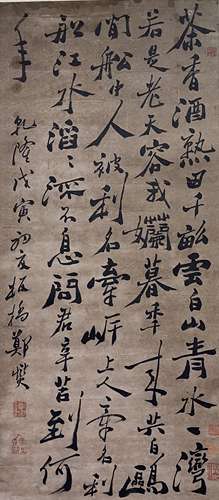 茶香酒熟田千畝雲白山青水一灣
若是老天容我嬾暮年來共白鷗
閒船中人被利名牽岸上人牽名利
船江水滔〻流不息問君辛苦到何
年
乾隆戊寅初夏板橋鄭燮